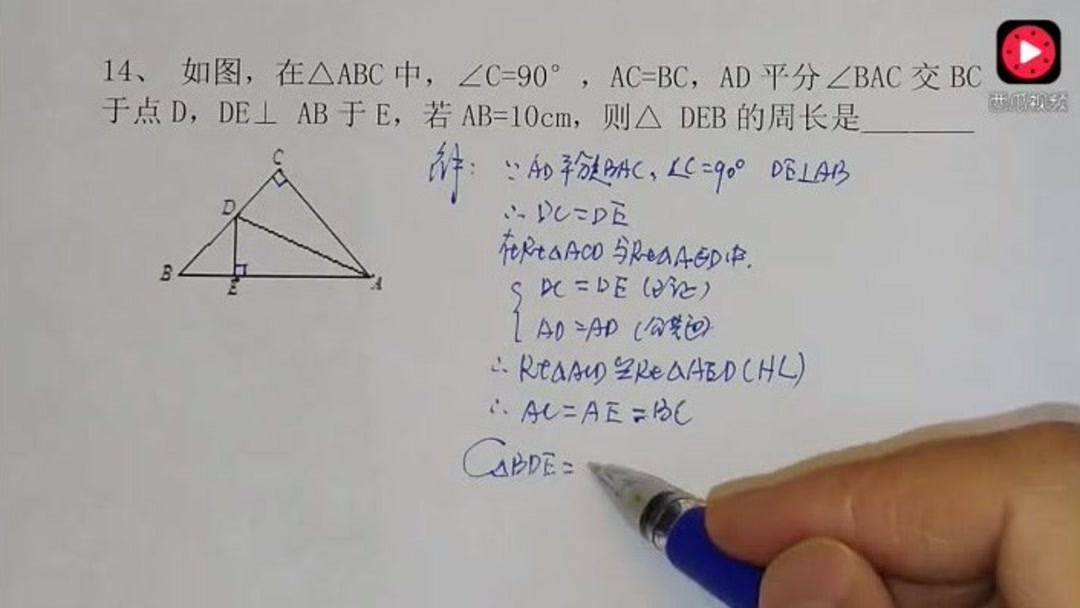 14、 如图，在△ABC 中，∠C=90°，AC=BC，AD 平分∠BAC 交 BC
于点 D，DE⊥ AB 于 E，若 AB=10cm，则△ DEB 的周长是______
西瓜视频
C
D
B
E
A
解：∵AD平分∠BAC，∠C=90° DE⊥AB
∴DC=DE
在Rt△ACD与Rt△AED中.
DC=DE(已证)
AD=AD(公共边)
∴Rt△ACD≌Rt△AED(HL)
∴AC=AE=BC
C△BDE=